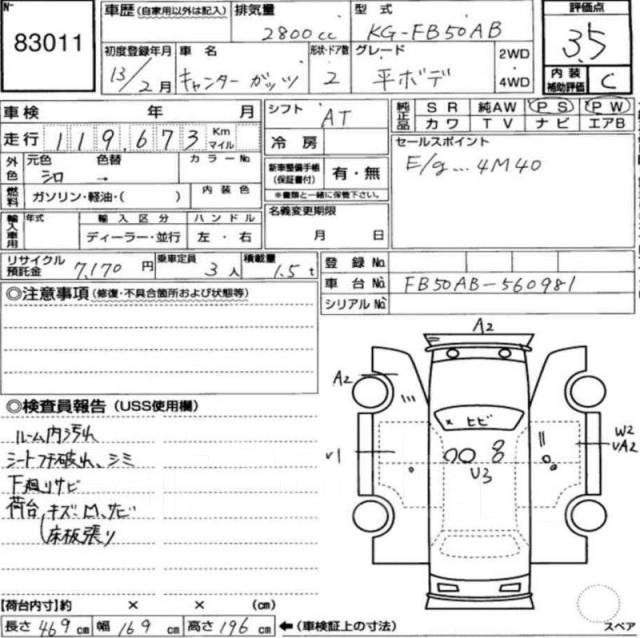 № 83011
車歴 (自家用以外は記入) 排気量 2800cc 型式 KG-FB50AB 評価点 3.5
初度登録年月 13/2月 車名 キャンターガッツ 形状・ドア数 2 グレード 平ボデ 2WD 4WD 内装補助評価 C
車検 年 月 シフト AT 純正品 SR 純AW PS PW
カワ TV ナビ エアB
走行 119,673 Km マイル 冷房
セールスポイント
E/g...4M40
外色 元色 シロ 色替 → カラーNo. 新車整備手帳(保証書付) 有・無
※書類と一緒に保管下さい。
燃料 ガソリン・軽油・( ) 内装色
名義変更期限 月 日
輸入車用 年式 輸入区分 ハンドル
ディーラー・並行 左・右
リサイクル預託金 7,170円 乗車定員 3人 積載量 1.5t
登録No.
車台No. FB50AB-560981
シリアルNo.
◎注意事項 (修復・不具合箇所および状態等)
◎検査員報告 (USS使用欄)
ルーム内汚れ
シートフチ破れ、シミ
下廻りサビ
荷台 キズ、凹、サビ
床板張り
A2
A2
×ヒビ
V1
V3
W2
VA2
【荷台内寸】約 × × (cm)
長さ 469cm 幅 169cm 高さ 196cm ←(車検証上の寸法)
スペア